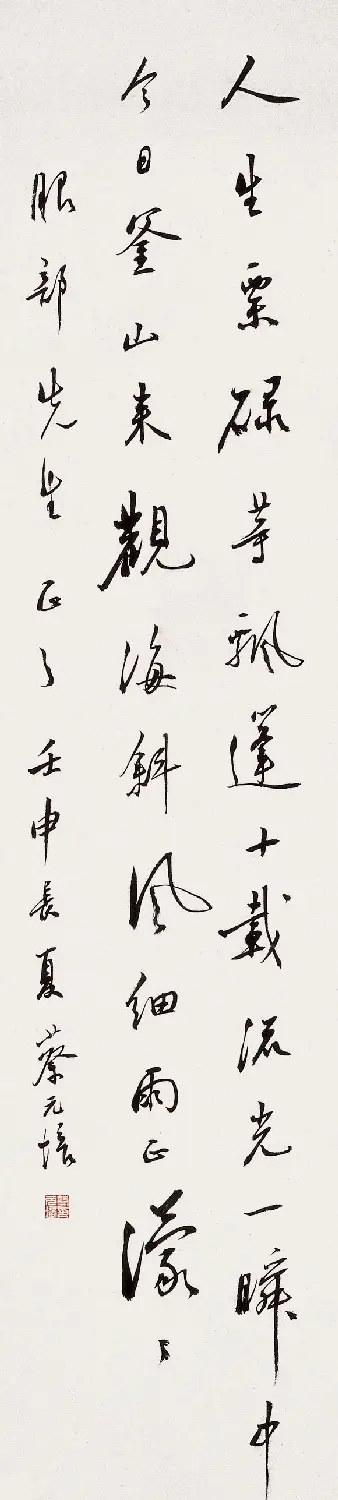 人生栗碌等飄蓬十載流光一瞬中
今日釜山來觀海斜風細雨正濛〻
服部先生正之 壬申長夏 蔡元培